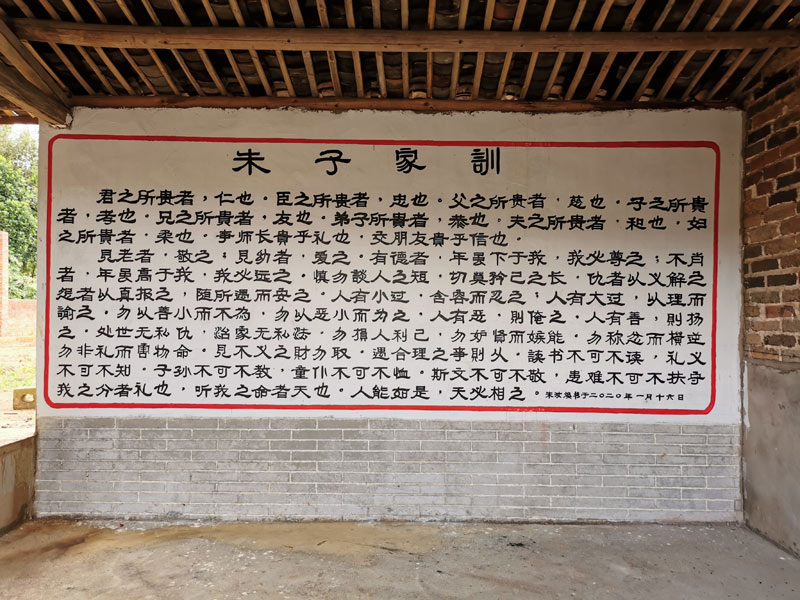 朱子家訓
君之所贵者，仁也．臣之所贵者，忠也．父之所贵者，慈也．子之所貴
者，孝也．兄之所貴者，友也．弟子所貴者，恭也，夫之所貴者，和也，妇
之所貴者，柔也．事师长贵乎礼也，交朋友貴乎信也．
見老者，敬之；見幼者，爱之．有德者，年虽下于我，我必尊之；不肖
者，年虽高于我，我必远之。慎勿談人之短，切莫矜己之长，仇者以义解之
怨者以真报之，随所遇而安之．人有小过，含容而忍之；人有大过，以理而
諭之．勿以善小而不為，勿以恶小而为之，人有恶，則俺之。人有善，則扬
之．处世无私仇，治家无私法．勿損人利己，勿妒賢而嫉能．勿称忿而橫逆
勿非礼而害物命．見不义之財勿取．遇合理之事則从．読书不可不读，礼义
不可不知．子孙不可不教，童仆不可不恤．斯文不可不敬，患难不可不扶守
我之分者礼也，听我之命者天也．人能如是，天必相之。书于二〇二〇年一月十六日